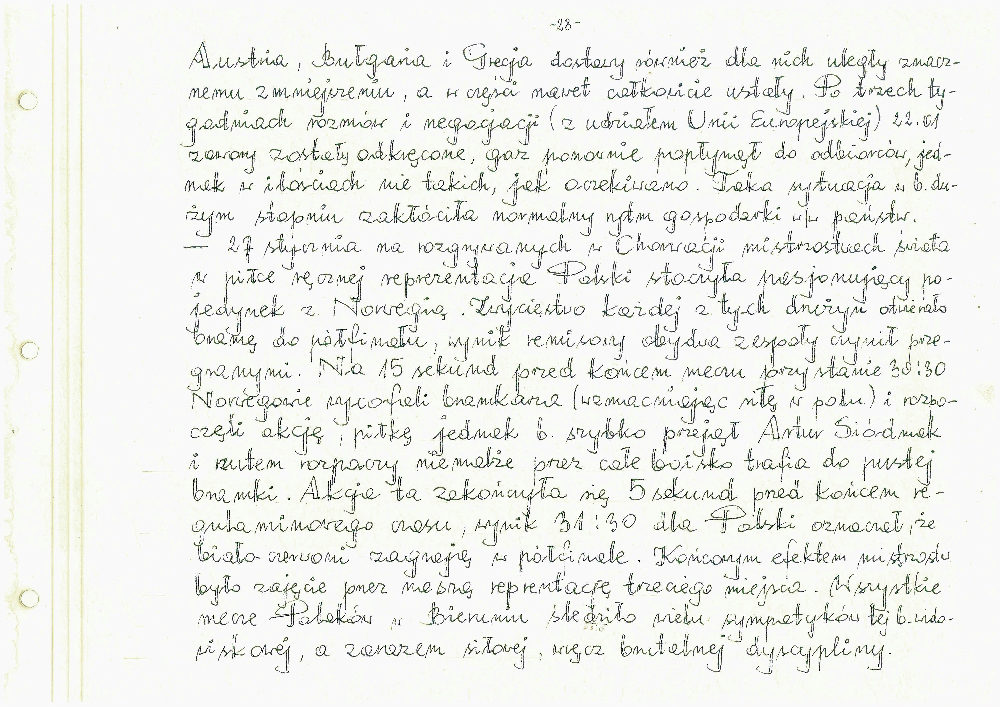 -28-
Austria, Bułgaria i Grecja dostawy również dla nich uległy znacz-
nemu zmniejszeniu, a w części nawet całkowicie ustały. Po trzech ty-
godniach rozmów i negocjacji (z udziałem Unii Europejskiej) 22.01
zawory zostały odkręcone, gaz ponownie popłynął do odbiorców, jed-
nak w ilościach nie takich, jak oczekiwano. Taka sytuacja w b. du-
żym stopniu zakłóciła normalny rytm gospodarki w/w państw.
— 27 stycznia na rozgrywanych w Chorwacji mistrzostwach świata
w piłce ręcznej reprezentacja Polski stoczyła pasjonujący po-
jedynek z Norwegią. Zwycięstwo każdej z tych drużyn otwierało
bramę do półfinału, wynik remisowy obydwa zespoły czynił prze-
granymi. Na 15 sekund przed końcem meczu przy stanie 30:30
Norwegowie wycofali bramkarza (wzmacniając siłę w polu) i rozpo-
częli akcję, piłkę jednak b. szybko przejął Artur Siódmak
i rzutem rozpaczy niemalże przez całe boisko trafia do pustej
bramki. Akcja ta zakończyła się 5 sekund przed końcem re-
gulaminowego czasu, wynik 31:30 dla Polski oznaczał, że
biało-czerwoni zagrają w półfinale. Końcowym efektem mistrzostw
było zajęcie przez naszą reprentację trzeciego miejsca. Wszystkie
mecze Polaków w Bieruniu śledziło wielu sympatyków tej b. wido-
wiskowej, a zarazem siłowej, wręcz brutalnej dyscypliny.